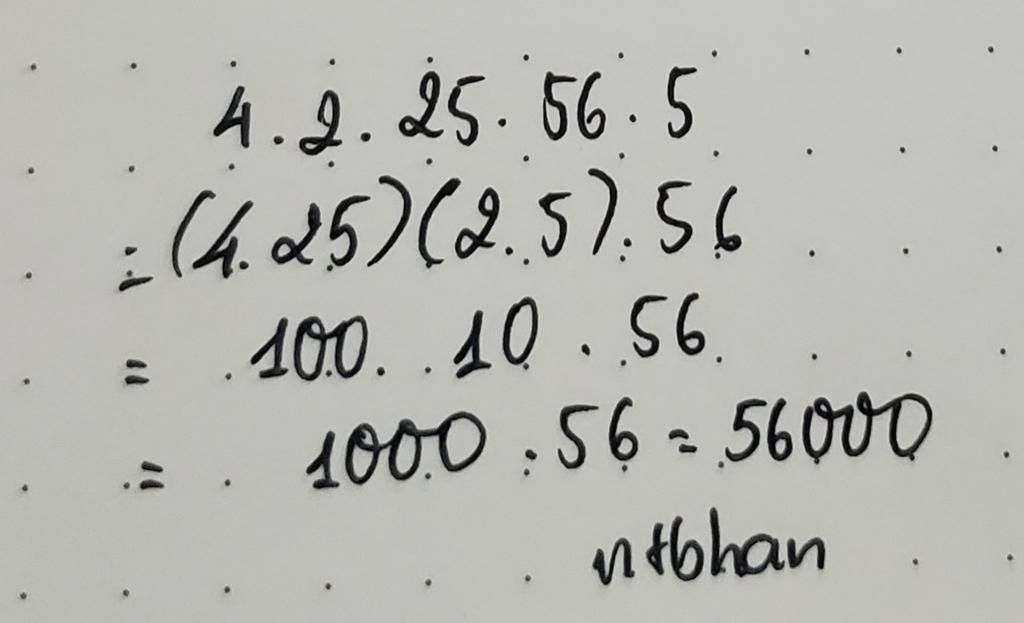 4 . 2 . 25 . 56 . 5
= (4.25)(2.5).56
= 100 . 10 . 56
= 1000 . 56 = 56000
ntbhan